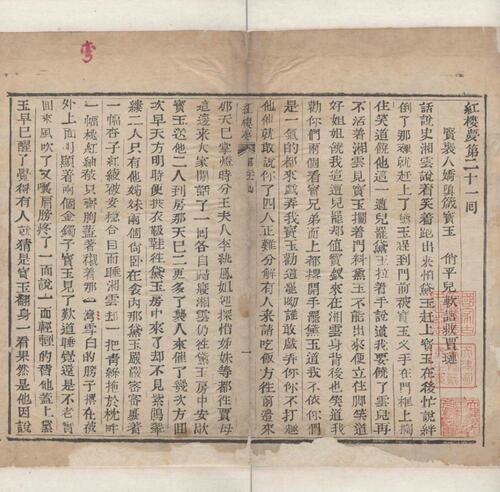 紅樓夢第二十一回
賢襲人嬌嗔箴寶玉 俏平兒軟語救賈璉
話說史湘雲說着笑着跑出來怕黛玉赶上寶玉在後忙說絆
倒了那裡就赶上了黛玉赶到門前被寶玉叉手在門框上攔
住笑道饒他這一遭兒罷黛玉拉着手說道我要饒了雲兒再
不活着湘雲見寶玉攔着門料黛玉不能出來便立住脚笑道
好姐姐饒我這遭兒罷却值寶釵來在湘雲身背後也笑道我
勸你們看寶兄弟面上都撂開手罷黛玉道我不依你們
是一氣的都來戲弄我寶玉勸道罷呦誰敢戲弄你你不打趣
他他就敢說你了四人正難分解有人來請吃飯方往前邊來
紅樓夢
一
那天已掌燈時分王夫人李紈鳳姐迎探惜姊妹等都往賈母
這邊來大家閒話了一回各自歸寢湘雲仍往黛玉房中安歇
寶玉送他二人到房那天已二更多了襲人來催了幾次方回
次早天方明時便披衣靸鞋往黛玉房中來了不見紫鵑翠
縷二人只有他姊妹兩個尚臥在衾內那黛玉嚴嚴密密裹着
一幅杏子紅綾被安穩合目而睡湘雲却一把青絲拖於枕畔
一幅桃紅紬被只齊胸蓋着襯着那一灣雪白的膀子撂在被
外上面明顯着兩個金鐲子寶玉見了歎道睡覺還是不老實
回來風吹了又嚷肩膀疼了一面說一面輕輕的替他蓋上黛
玉早已醒了覺得有人就猜是寶玉翻身一看果然是他因說